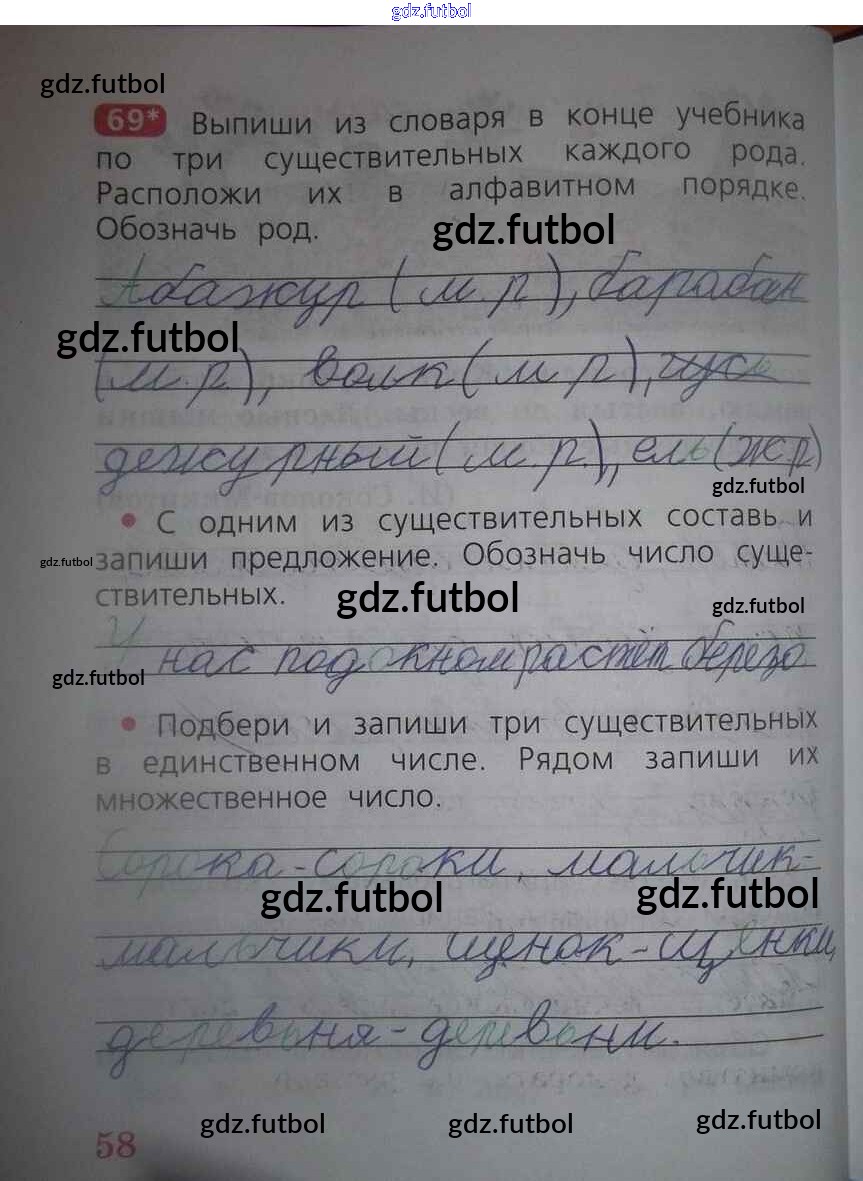 gdz.futbol
gdz.futbol
69* Выпиши из словаря в конце учебника
по три существительных каждого рода.
Расположи их в алфавитном порядке.
Обозначь род.
gdz.futbol
Абажур (м.р), барабан
gdz.futbol
(м.р), волк (м.р), гусь
дежурный (м.р.), ель (ж.р)
gdz.futbol
• С одним из существительных составь и
gdz.futbol
запиши предложение. Обозначь число суще-
ствительных.
gdz.futbol
gdz.futbol
У нас под окном растёт берёза
gdz.futbol
• Подбери и запиши три существительных
в единственном числе. Рядом запиши их
множественное число.
Сорока - сороки, мальчик-
gdz.futbol
gdz.futbol
мальчики, щенок - щенки,
деревьня - деревьни.
gdz.futbol
gdz.futbol
gdz.futbol
58